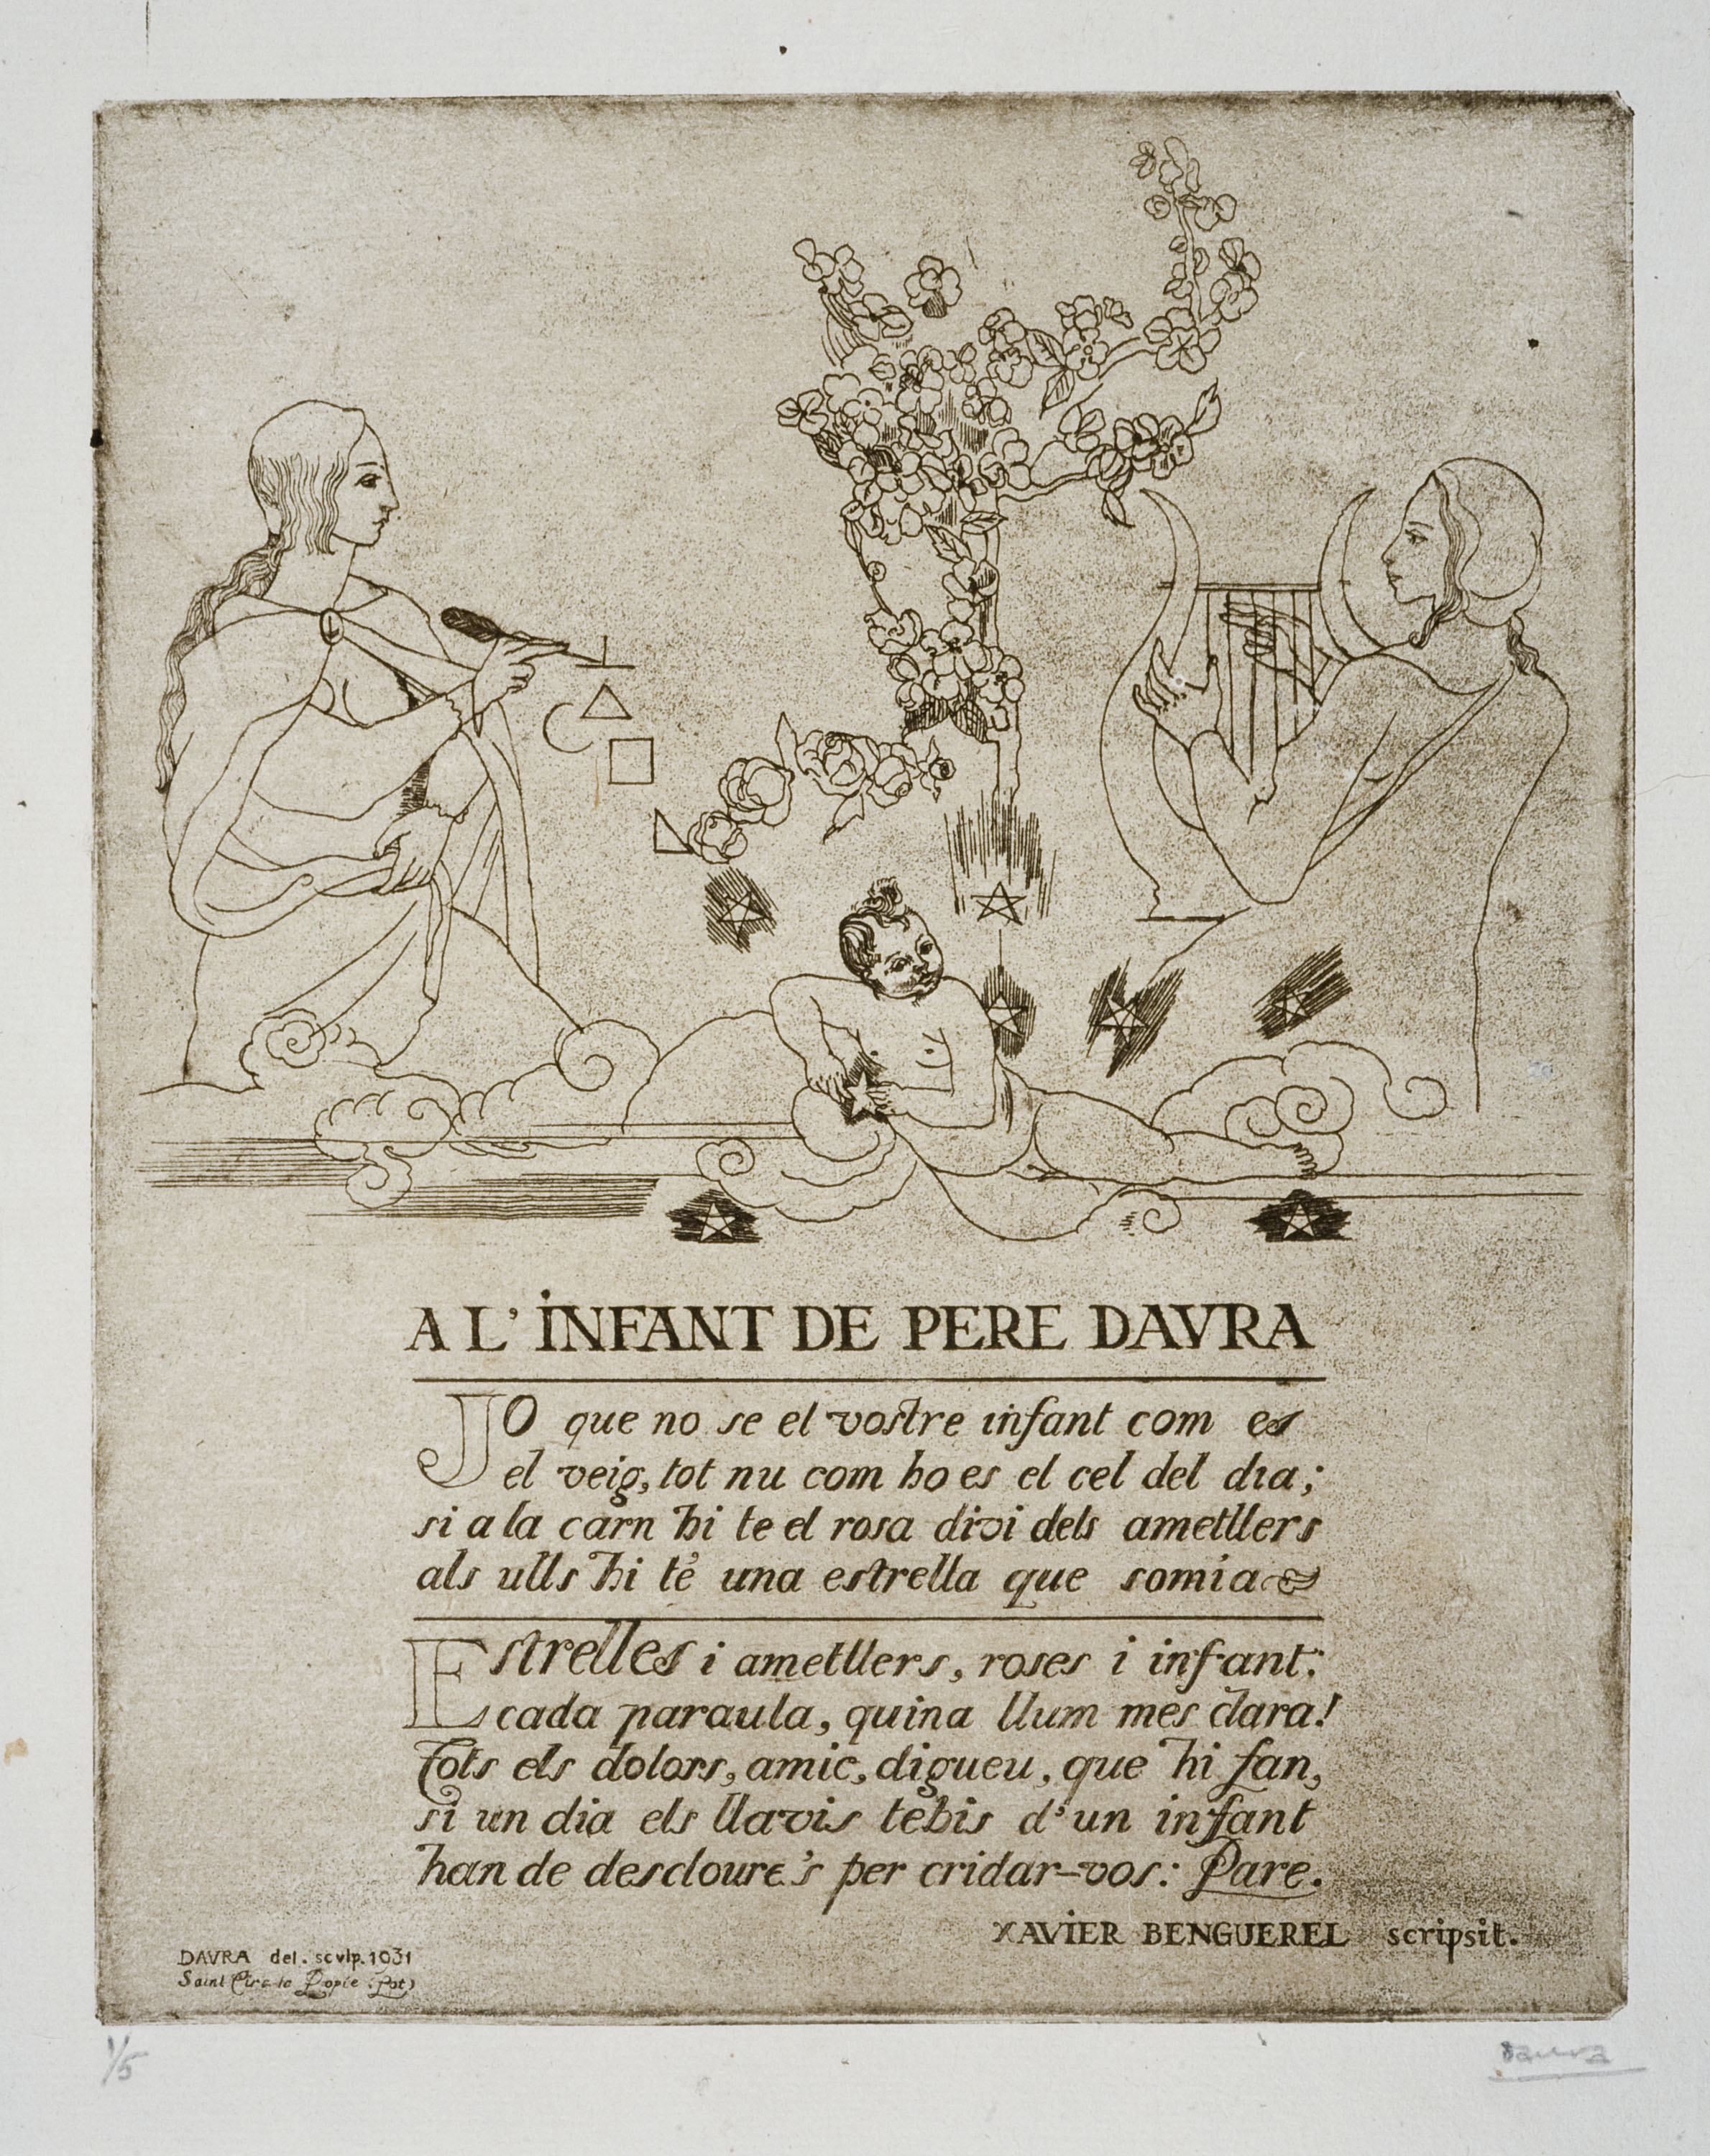 A L'INFANT DE PERE DAVRA
JO que no se el vostre infant com es
el veig, tot nu com ho es el cel del dia;
si a la carn hi te el rosa divi dels ametllers
als ulls hi té una estrella que somia
Estrelles i ametllers, roses i infant:
cada paraula, quina llum mes clara!
Tots els dolors, amic, digueu, que hi fan,
si un dia els llavis tebis d'un infant
han de descloure's per cridar-vos: Pare.
XAVIER BENGUEREL scripsit.
DAVRA del. scvlp. 1931
Saint Cirq la Popie (Lot)
1/5
Daura